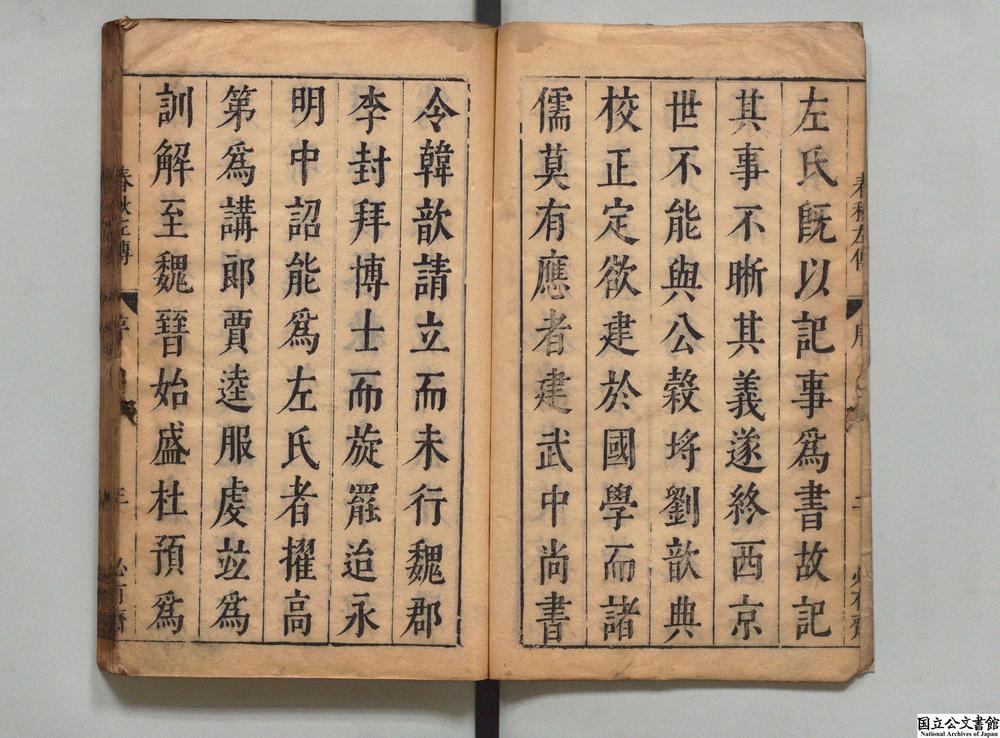 左氏旣以記事爲書故記
其事不晰其義遂終西京
世不能與公榖埒劉歆典
校正定欲建於國學而諸
儒莫有應者建武中尚書
令韓歆請立而未行魏郡
李封拜博士而旋罷迨永
明中詔能爲左氏者擢高
第爲講郎賈逵服虔並爲
訓解至魏晉始盛杜預爲
春秋左傳
序
三
国立公文書館
National Archives of Japan